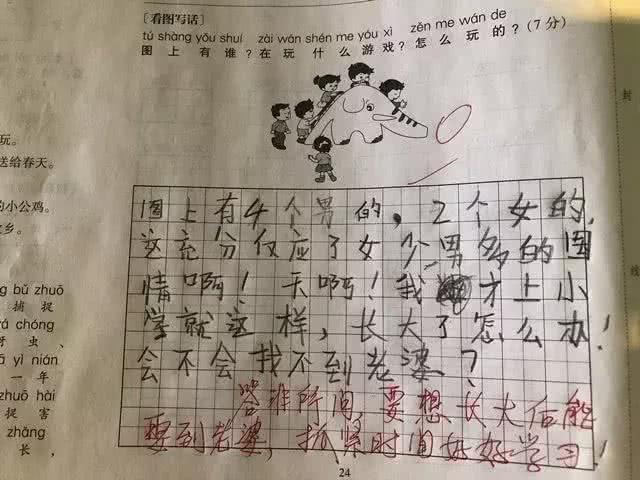 [看图写话]
tú shàng yǒu shuí zài wán shén me yóu xì zěn me wán de
图上有谁?在玩什么游戏?怎么玩的?(7分)
玩。
送给春天。
的小公鸡。
乡。
bǔ zhuō
捕捉
chóng
虫、
yì nián
一年
zhuō hài
捉害
zhǎng
长,
图上有4个男的,2个女的,
这充分仅应了女少男多的国
情啊!天啊!我才上小
学就这样,长大了怎么办!
会不会找不到老婆?
答非所问,要想长大后能
娶到老婆,抓紧时间好好学习!
24
封
线